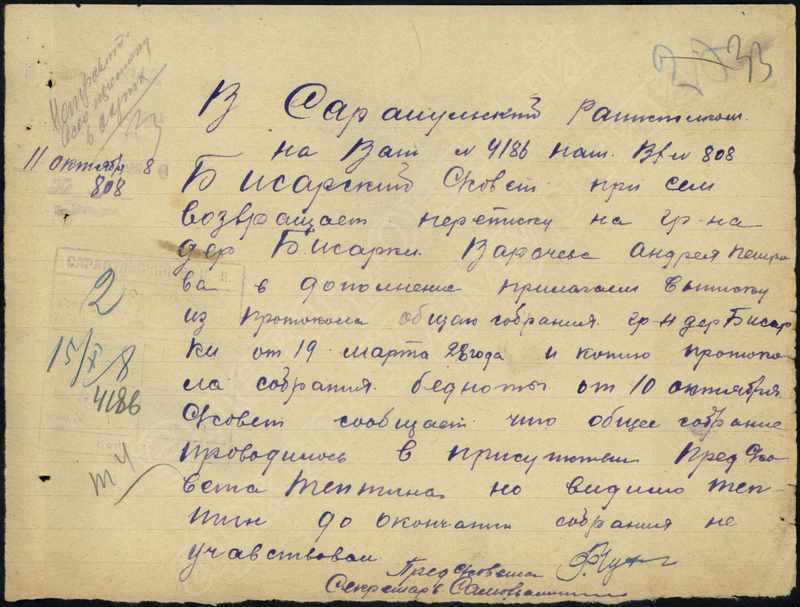 233
в
11 октября 8
808
В Сарапульский
на Ваш № 4186 наш. Вх № 808
Бисарский Совет при сем
возвращает переписку на гр-на
дер Бисарки Андрея Петро
ва в дополнение прилагаем выписку
из протокола общаго собрания гр-н дер Бисар
ки от 19 марта 28 года и копию протоко
ла собрания бедноты от 10 октября
Совет сообщает что общее собрание
проводилось в присутствии Пред Со
вета Тептина но видимо Теп
тин до окончания собрания не
учавствовал
Пред Совета
Секретарь
2
15/X 8
4186